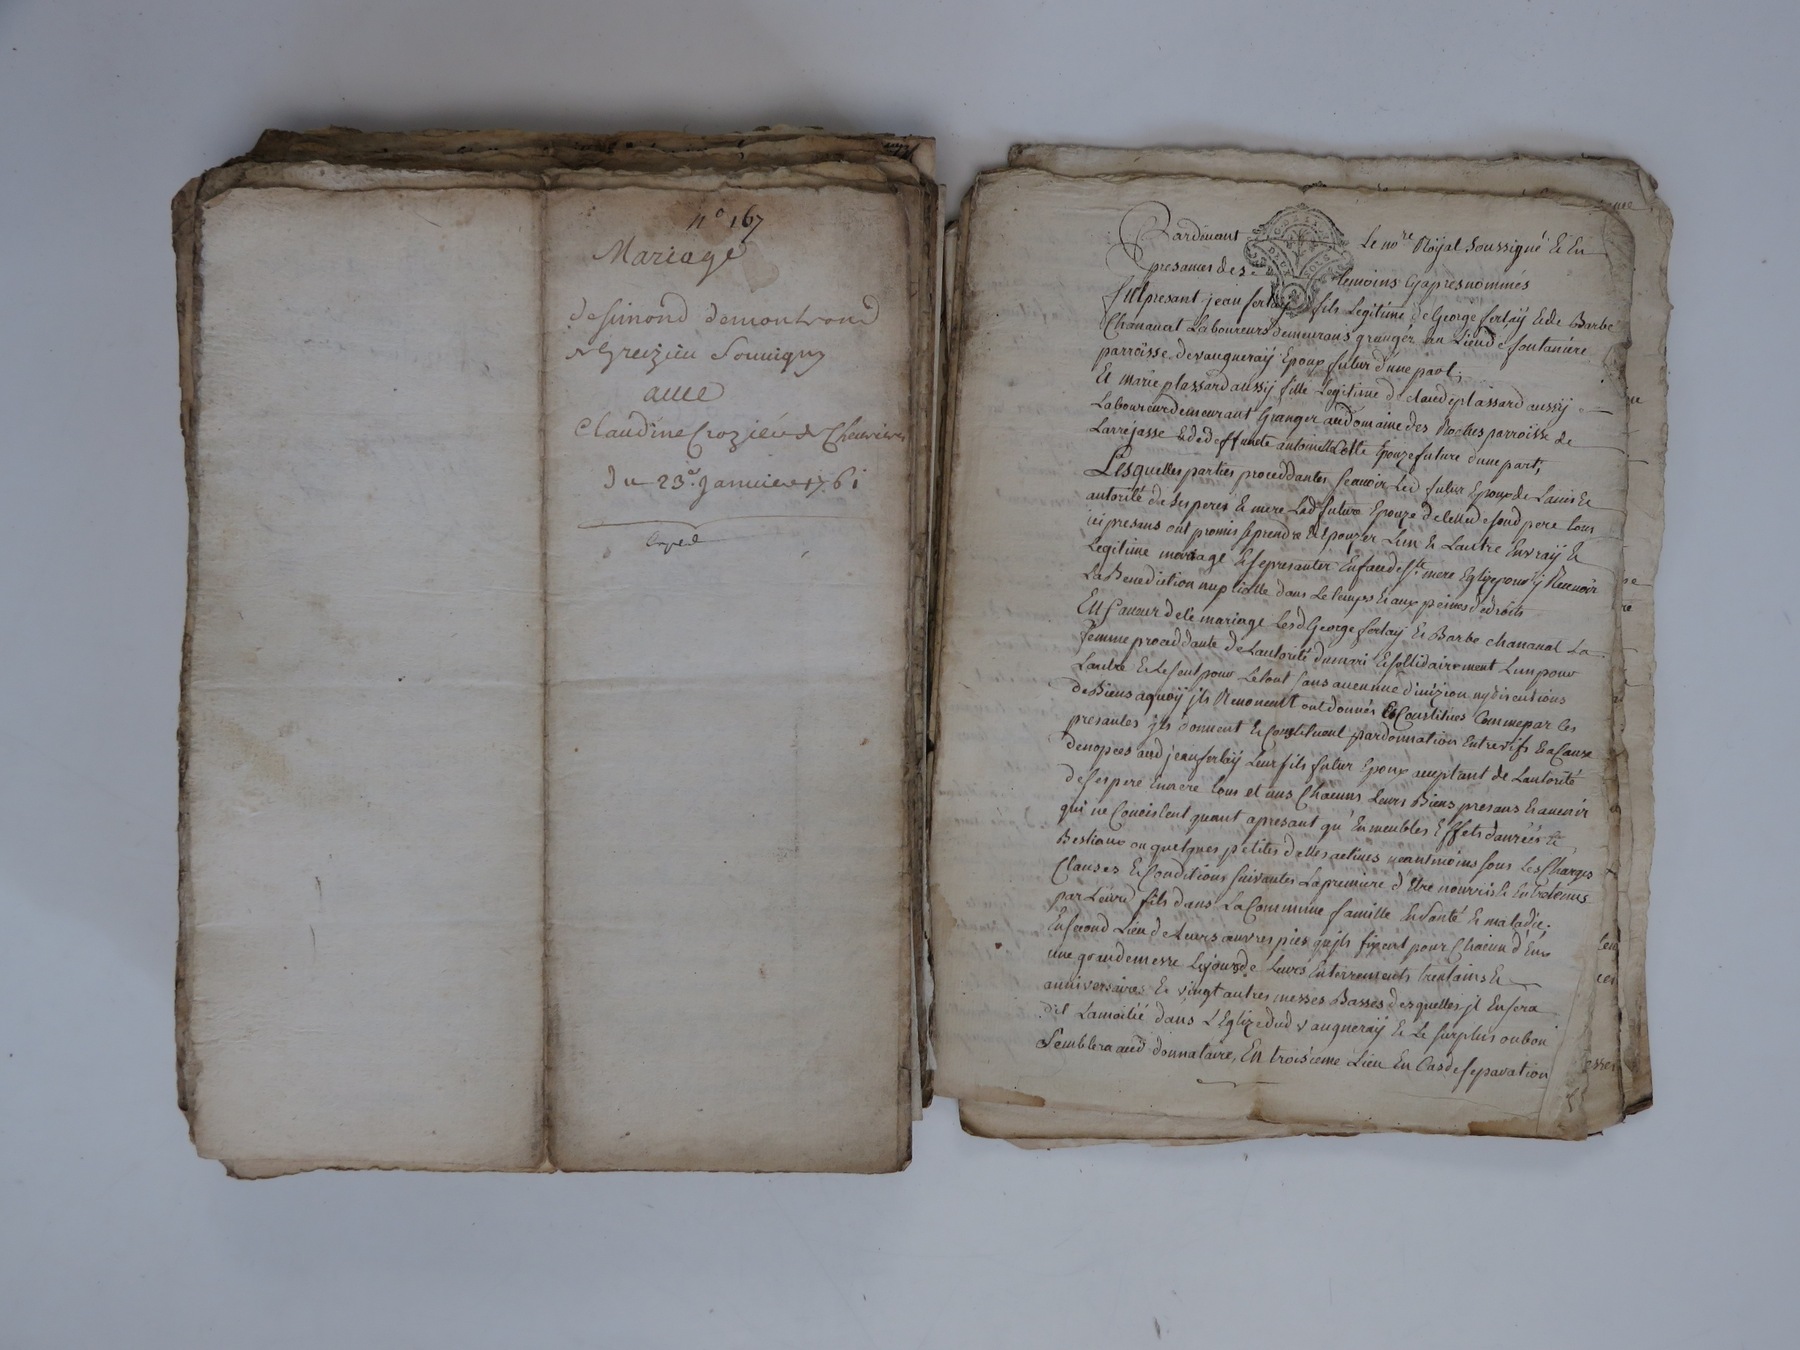 n° 167
Mariage
de simond demontrond
de Greizieu Souvigny
avec
Claudine Crozier de Chevrieres
du 23e. Janvier 1761
Expedié
Pardevant le nore. Royal soussigné & en
presances des temoins cy apres nommés
Fut presant jean ferlay fils Legitime de George ferlaÿ & de Barbe
Chanavat Laboureurs demeurans granger au Lieu de fontaniere
parroisse de vaugneraÿ Epoux futur d'une part;
Et Marie plassard aussÿ fille Legitime de claude plassard aussÿ
Laboureur demeurant Granger au domaine des Roches parroisse de
Larrejasse & de deffunete antoinette Epouze future d'une part;
Lesquelles parties proceddantes scavoir Led futur Epoux de Lavis &
autorité de ses pere & mere Lad future Epouze de celle de sond pere tous
ici presans ont promis se prendre & Epouzer L'un & L'autre En vraÿ &
Legitime mariage & se presanter En face de ste mere Eglize pour ÿ Recevoir
La Benediction nuptialle dans Le temps & aux peines de droits
En faveur de ce mariage Lesd George ferlaÿ & Barbe chanavat La
femme proceddante de Lautorité du mari & sollidairement L'un pour
Lautre & Le seul pour Le tout sans aucunne divizion ny discutions
de Biens aquoÿ jls Renoncent ont donnés & Constitués Comme par les
presantes jls donnent & Constituent par donnation Entrevifs & a Cause
de nopces aud jean ferlaÿ Leur fils futur Epoux acceptant de Lautorité
de ses pere & mere tous et uns Chacuns Leurs Biens presans & avenir
qui ne Concistent quant apresant qu'En meubles Effets danrées &
Bestiaux ou quelques petites dettes actives neantmoins sous Les Charges
Clauses & Conditions suivantes La premiere d'Etre nourris & Entretenus
par Leurd fils dans La Commune famille En santé & maladie.
En second Lieu de Leurs œuvres pies qu'jls fixent pour Chacun d'Eux
une grande messe Le jour de Leurs Enterrements trentains &
anniversaires & vingt autres messes Basses desquelles jl En sera
dit La moitié dans L'Eglize dud vaugneraÿ & Le surplus ou bon
semblera aud donnataire, En troisieme Lieu En Cas de separation